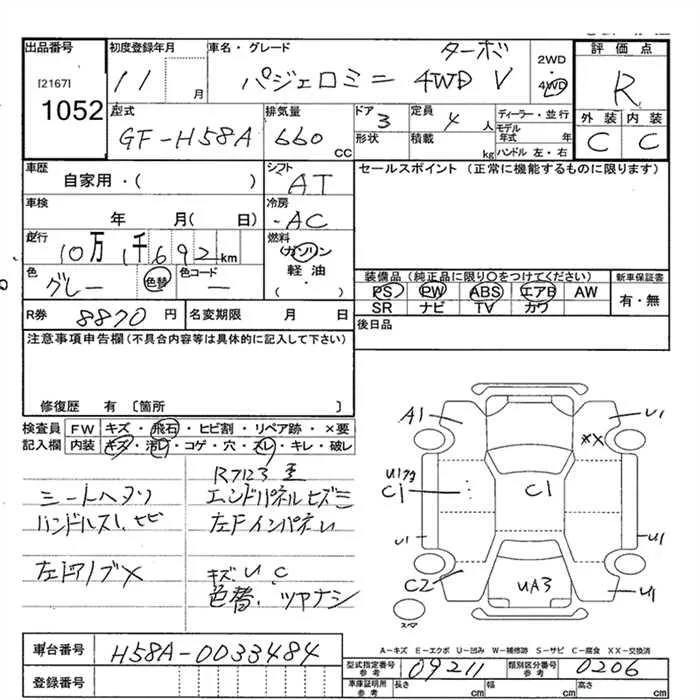 出品番号
[2167]
1052
初度登録年月
11
月
車名・グレード
ターボ
パジェロミニ 4WD V
2WD
4WD
評価点
R
外装 内装
C C
型式
GF-H58A
排気量
660
CC
ドア
3
形状
定員
4 人
積載
kg
ディーラー・並行
モデル年式 年
ハンドル 左・右
車歴
自家用・( )
シフト
AT
セールスポイント (正常に機能するものに限ります)
車検
年 月( 日)
冷房
AC
走行
10万 1千692 km
燃料
ガソリン
軽油
( ・ )
色
グレー
色替
色コード
ー
装備品 (純正品に限り○をつけてください)
PS PW ABS エアB AW
SR ナビ TV カワ
新車保証書
有・無
R券 8870 円
名変期限 月 日
後日品
注意事項申告欄(不具合内容等は具体的に記入して下さい)
修復歴 有 〔箇所 〕
検査員記入欄
FW キズ・飛石・ヒビ割・リペア跡・×要
内装 キズ・汚レ・コゲ・穴・スレ・キレ・破レ
シートヘタリ
ハンドルスレ
R7123
エンドパネルヒズミ
左Fインパネ
キズ U C
色替.ツヤナシ
A1
U1
XX
C1
C1
U1
U1
C2
UA3
U1
スマ
A-キズ E-エクボ U-凹み W-補修跡 S-サビ C-腐食 XX-交換済
車台番号 H58A-0033484
登録番号
型式指定番号 参考 09211
類別区分番号 参考 0206
車庫証明用 参考
長さ cm
幅 cm
高さ cm